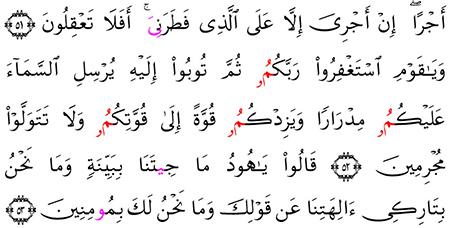 أَجْرًا ۖ إِنْ أَجْرِىَ إِلَّا عَلَى ٱلَّذِى فَطَرَنِىَ ۚ أَفَلَا تَعْقِلُونَ ٥١
وَيَـٰقَوْمِ ٱسْتَغْفِرُوا۟ رَبَّكُمُۥ ثُمَّ تُوبُوا۟ إِلَيْهِ يُرْسِلِ ٱلسَّمَآءَ
عَلَيْكُمُۥ مِدْرَارًا وَيَزِدْكُمُۥ قُوَّةً إِلَىٰ قُوَّتِكُمُۥ وَلَا تَتَوَلَّوْا۟
مُجْرِمِينَ ٥٢ قَالُوا۟ يَـٰهُودُ مَا جِيتَنَا بِبَيِّنَةٍ وَمَا نَحْنُ
بِتَارِكِى ءَالِهَتِنَا عَن قَوْلِكَ وَمَا نَحْنُ لَكَ بِمُومِنِينَ ٥٣